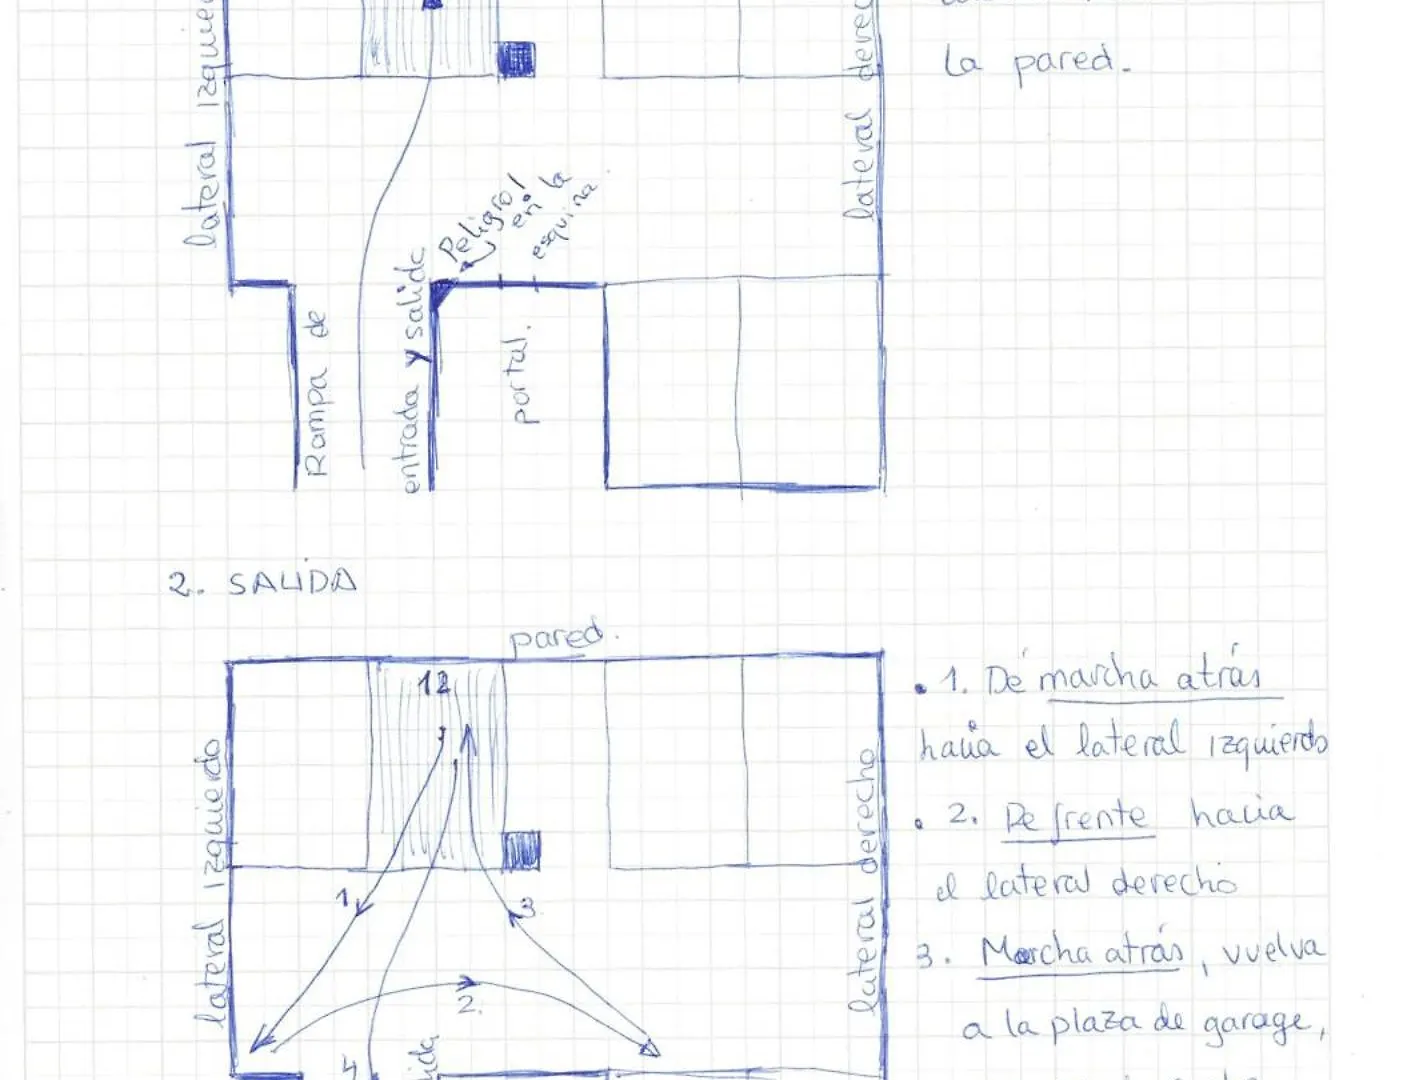 lateral izquie
lateral derec
la pared.
Peligro!
en la
esquina.
Rampa de
entrada y salida
portal.
2. SALIDA
pared.
12
lateral izquierdo
lateral derecho
1
2.
3
4
lida
• 1. Dé marcha atrás
hacia el lateral izquierdo
• 2. De frente hacia
el lateral derecho
3. Marcha atrás, vuelva
a la plaza de garage,